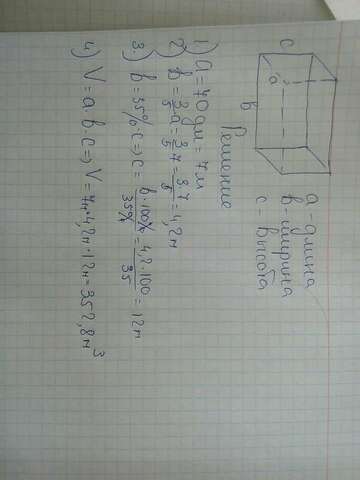 c
a
b
a - длина
b - ширина
c - высота
Решение
1) a = 70 дм = 7 м
2) b = 3/5 a = 3/5 · 7 = 3·7/5 = 4,2 м
3.) b = 35% · c ⇒ c = b·100%/35% = 4,2·100/35 = 12 м
4) V = a·b·c ⇒ V = 7м·4,2м·12м = 352,8 м³